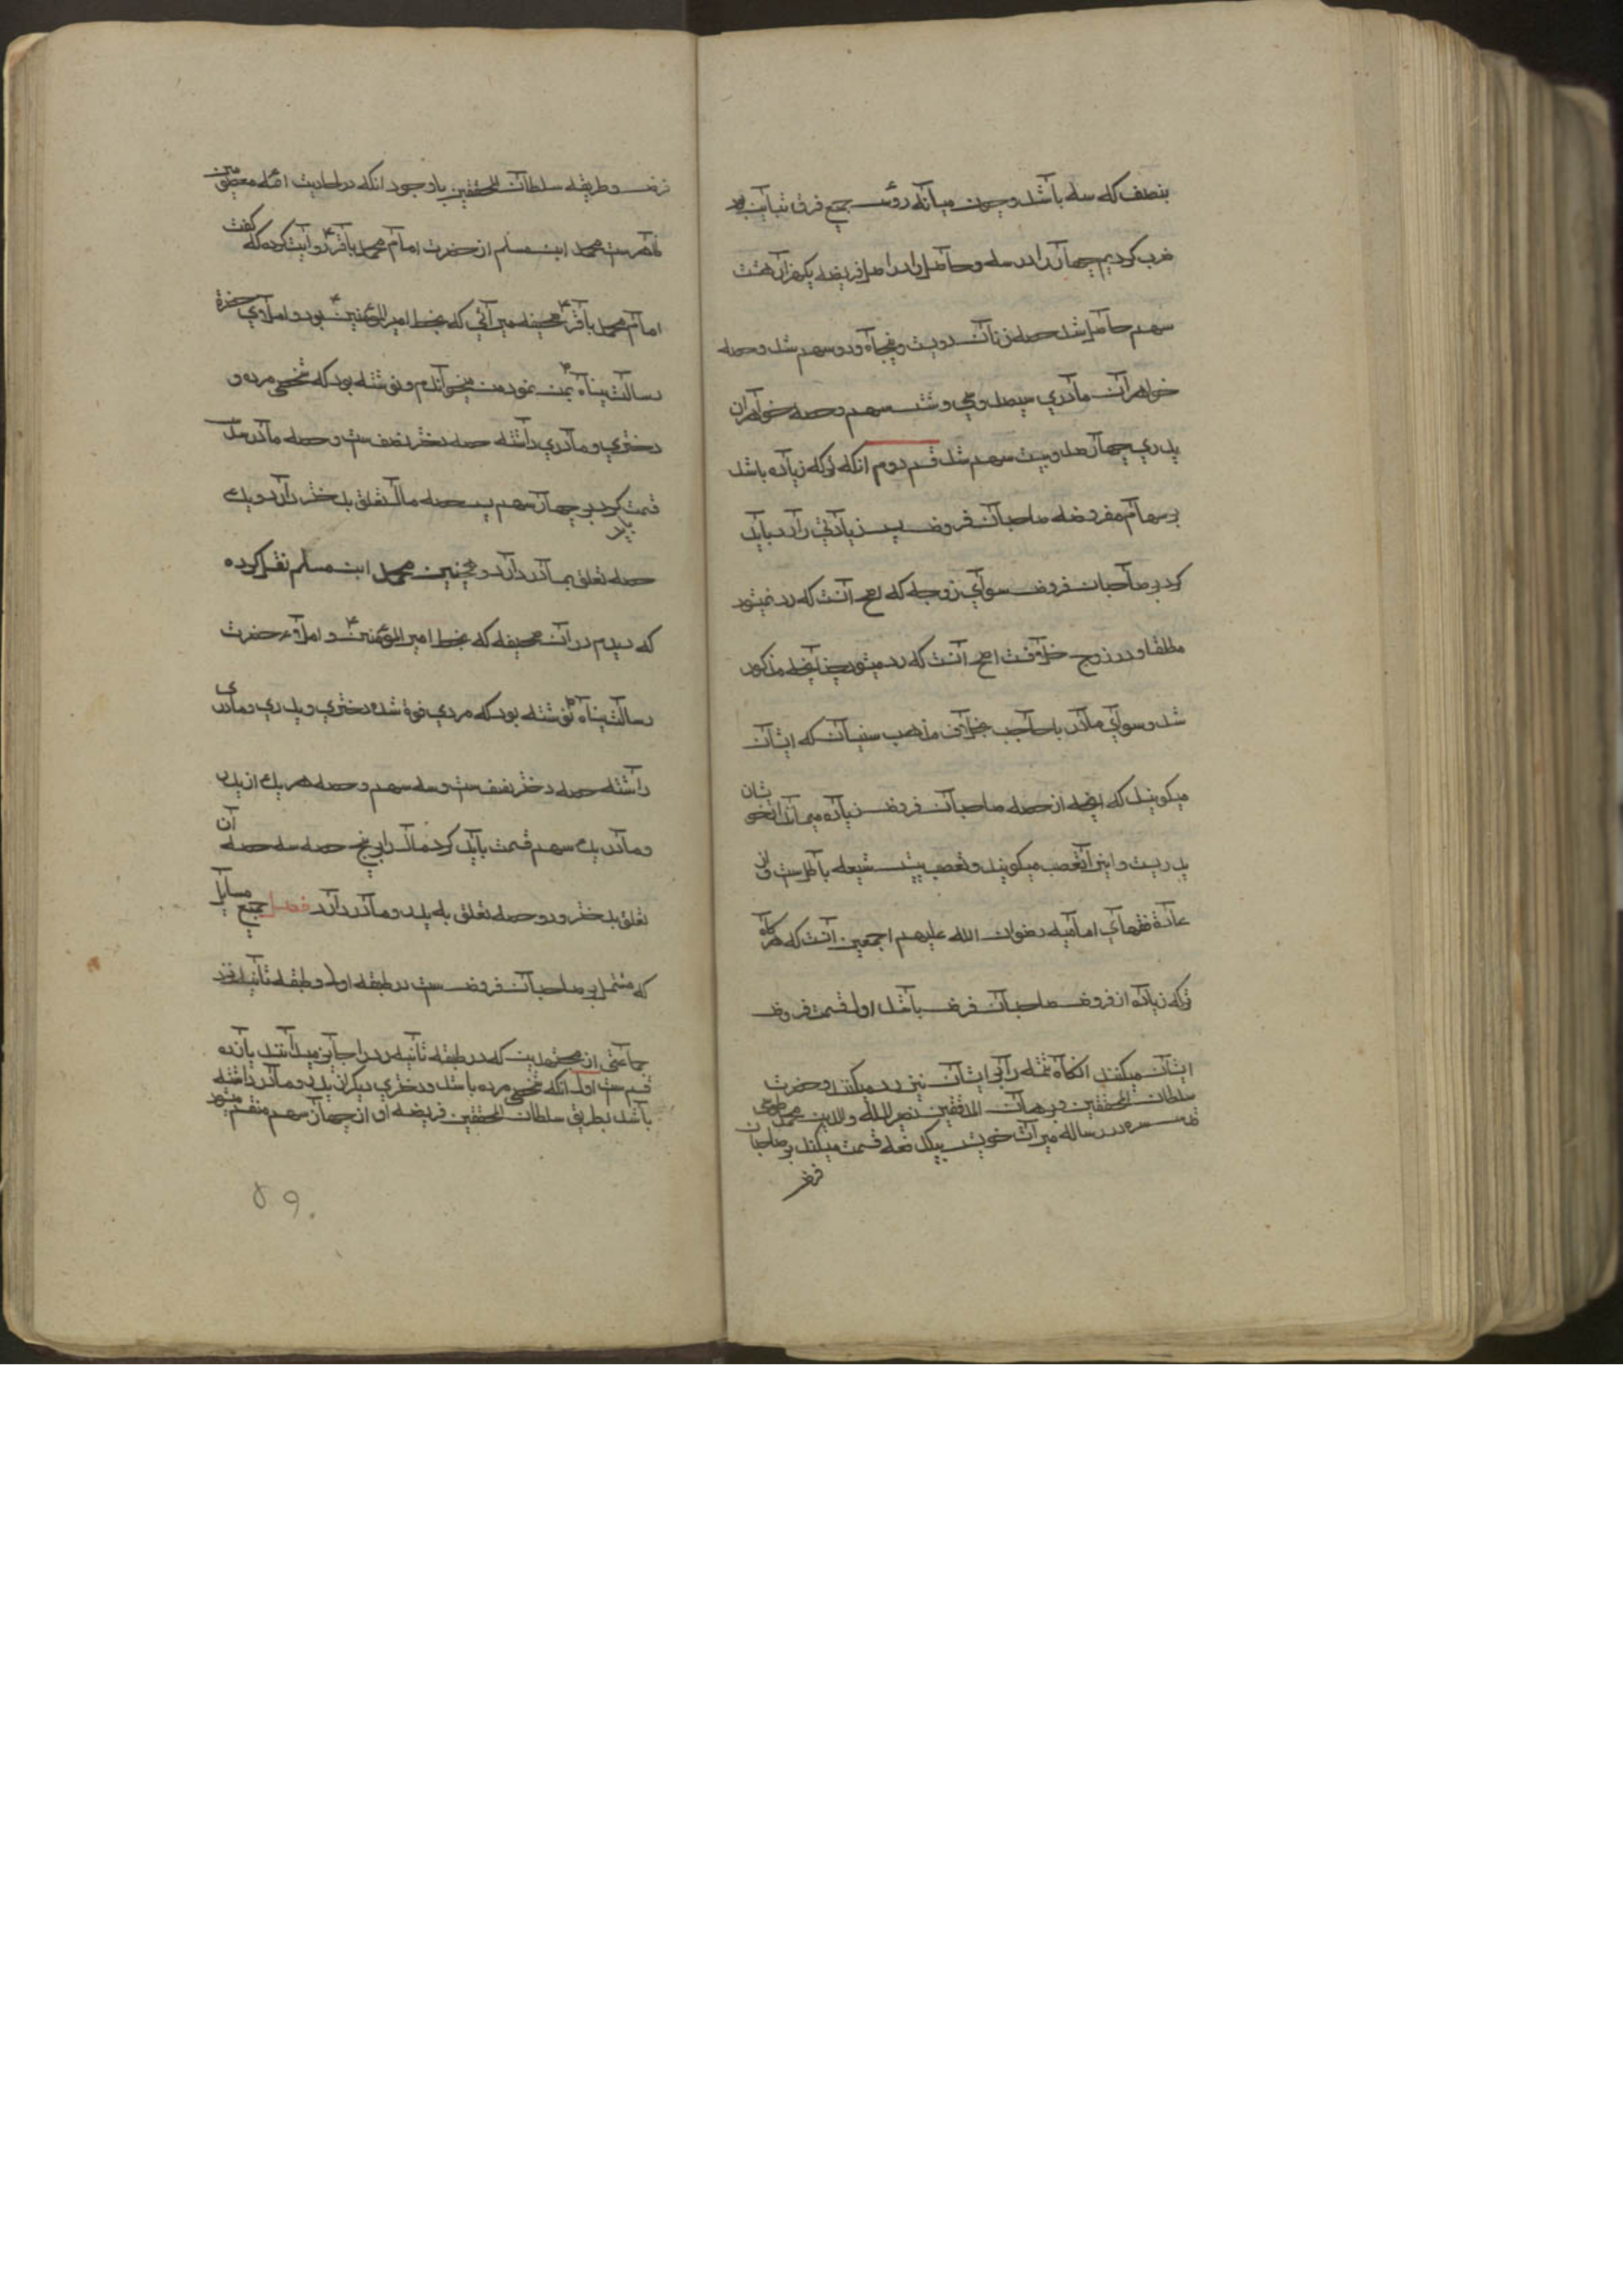 بنصف که سه باشد و چون میانه رؤس جمیع فرق تباینست
ضرب کردیم چهار را در سه و حاصل را در اصل فریضه یکهزار هشت
سهم حاصل شد حصه زنان دویست و پنجاه و دو سهم شد و حصه
خواهران مادری سیصد و سی و شش سهم و حصه خواهران
پدری چهار صد و بیست سهم شد قسم دوم انکه ترکه زیاده باشد
بر سهام مفروضه صاحبان فروض پس زیادتی را رد باید
کرد بر صاحبان فروض سوای زوجه که اصح آنست که رد نمیشود
مطلقا و در زوج خلافست اصح آنست که رد میشود چنانچه مذکور
شد و سوای مادر با حاجب بخلاف مذهب سنیان که ایشان
میکویند که انچه از حصه صاحبان فروض زیاده میماند از خویشان
پدریست و این را تعصب میکویند و تعصب پیش شیعه باطلست و از
عادة فقهای امامیه رضوان الله علیهم اجمعین آنست که هرکاه
ترکه زیاده از فروض صاحبان فرض باشد اول قسمت فروض
ایشان میکنند انکاه تتمه را بر ایشان نیز رد میکنند و حضرت
سلطان المحققین و برهان المدققین نصیر المله والدین محمد طوسی
قدس سره در رساله میراث خویش بیکدفعه قسمت میکند بر صاحبان
فرض
فرض و طریقه سلطان المحققین باوجود انکه در احادیث ائمه معصومین
ظاهرست محمد ابن مسلم از حضرت امام محمد باقر ع روایت کرده که کفت
امام محمد باقر ع صحیفه میراثی که بخط امیر المؤمنین ع بود و املاوی حضرة
رسالت پناه ص بمن نمود من میخواندم و نوشته بود که شخصی مرده و
دختری و مادری داشته حصه دختر نصف ست و حصه مادر سدس
قسمت باید کرد بر چهار سهم پس سه حصه مال تعلق بدختر دارد و یک
حصه تعلق بمادر دارد و همچنین محمد ابن مسلم نقل کرده
که دیدم در آن صحیفه که بخط امیر المؤمنین ع و املاء حضرت
رسالت پناه ص نوشته بود که مردی فوة شده دختری و پدری و مادری
داشته حصه دختر نصف ست و سه سهم و حصه هر یک از پدر
و مادر یک سهم قسمت باید کرد مال را بر پنج حصه سه حصه آن
تعلق بدختر و دو حصه تعلق به پدر و مادر دارد فصل جمیع مسایل
که مشتمل بر صاحبان فروض ست در طبقه اول و طبقه ثانیه نزد
جماعتی از مجتهدین که در طبقه ثانیه رد را جایز میدانند یازده
قسم ست اول انکه شخصی مرده باشد و دختری دیکر از پدر و مادر داشته
باشد بطریق سلطان المحققین فریضه او از چهار سهم منقسم میشود